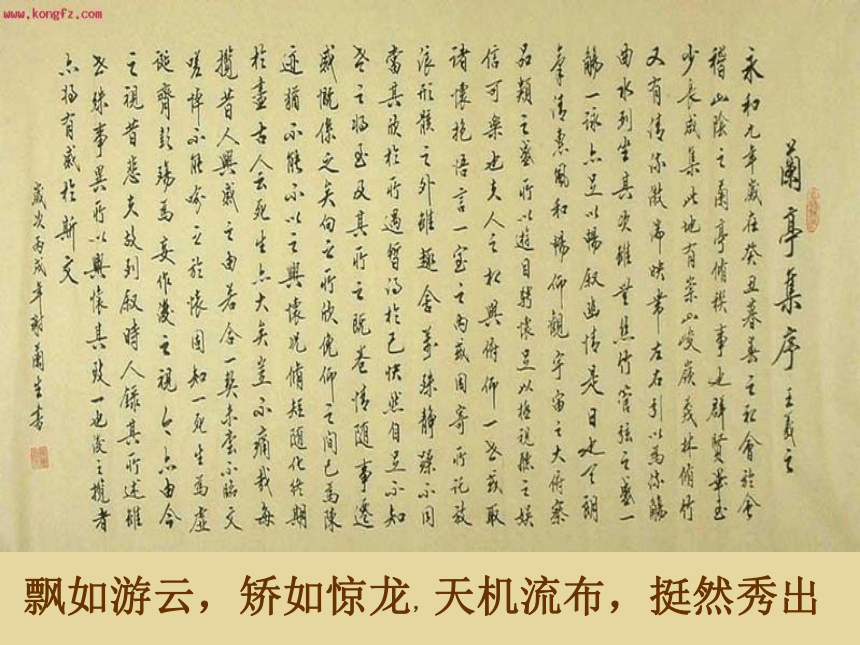 www.kongfz.com
蘭亭集序 王羲之
永和九年歲在癸丑暮春之初會於會
稽山陰之蘭亭脩稧事也群賢畢至
少長咸集此地有崇山峻嶺茂林脩竹
又有清流激湍映帶左右引以為流觴
曲水列坐其次雖無絲竹管弦之盛一
觴一詠亦足以暢敘幽情是日也天朗
氣清惠風和暢仰觀宇宙之大俯察
品類之盛所以遊目騁懷足以極視聽之娛
信可樂也夫人之相與俯仰一世或取
諸懷抱悟言一室之內或因寄所託放
浪形骸之外雖趣舍萬殊靜躁不同
當其欣於所遇暫得於己快然自足不知
老之將至及其所之既惓情隨事遷
感慨係之矣向之所欣俛仰之間已為陳
迹猶不能不以之興懷況脩短隨化終期
於盡古人云死生亦大矣豈不痛哉每
攬昔人興感之由若合一契未嘗不臨文
嗟悼不能喻之於懷固知一死生為虛
誕齊彭殤為妄作後之視今亦由今
之視昔悲夫故列敘時人錄其所述雖
世殊事異所以興懷其致一也後之攬者
亦將有感於斯文
歲次丙戌年謝蘭生書
飘如游云，矫如惊龙,天机流布，挺然秀出